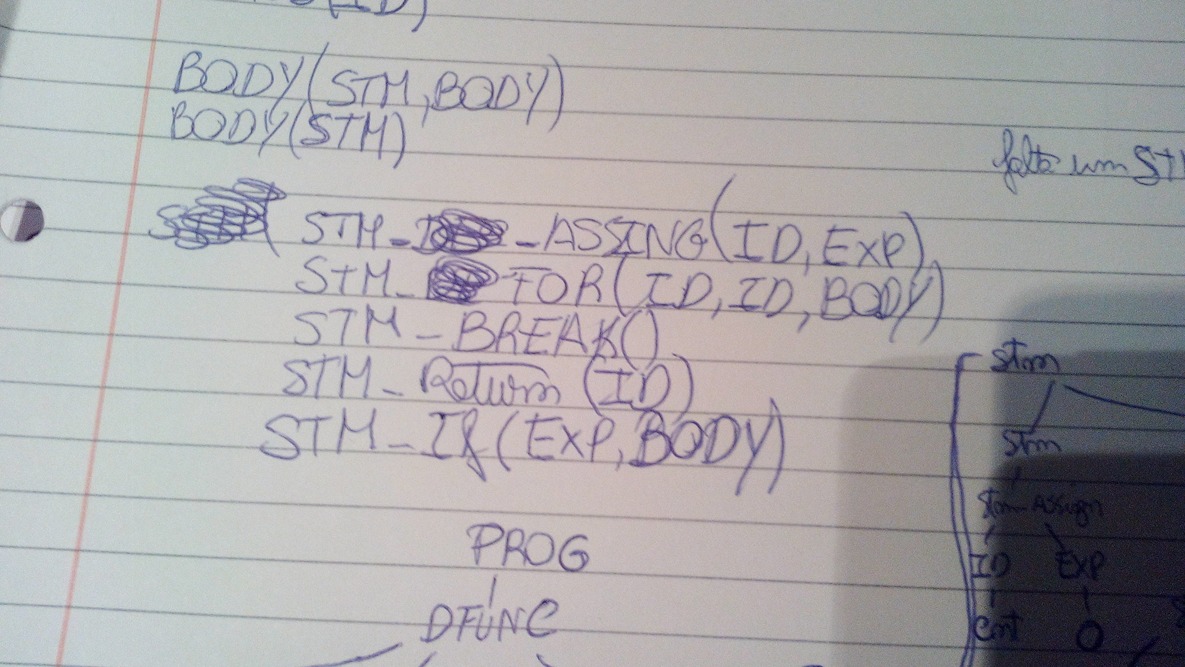 (ID)
BODY(STM,BODY)
BODY(STM)
falta um
STM - ASSING(ID,EXP)
STM - FOR(ID,ID,BODY)
STM - BREAK()
STM - Return (ID)
STM - If (EXP,BODY)
Stm
Stm
Stm Assign
ID EXP
Cnt 0
PROG
DFUNC